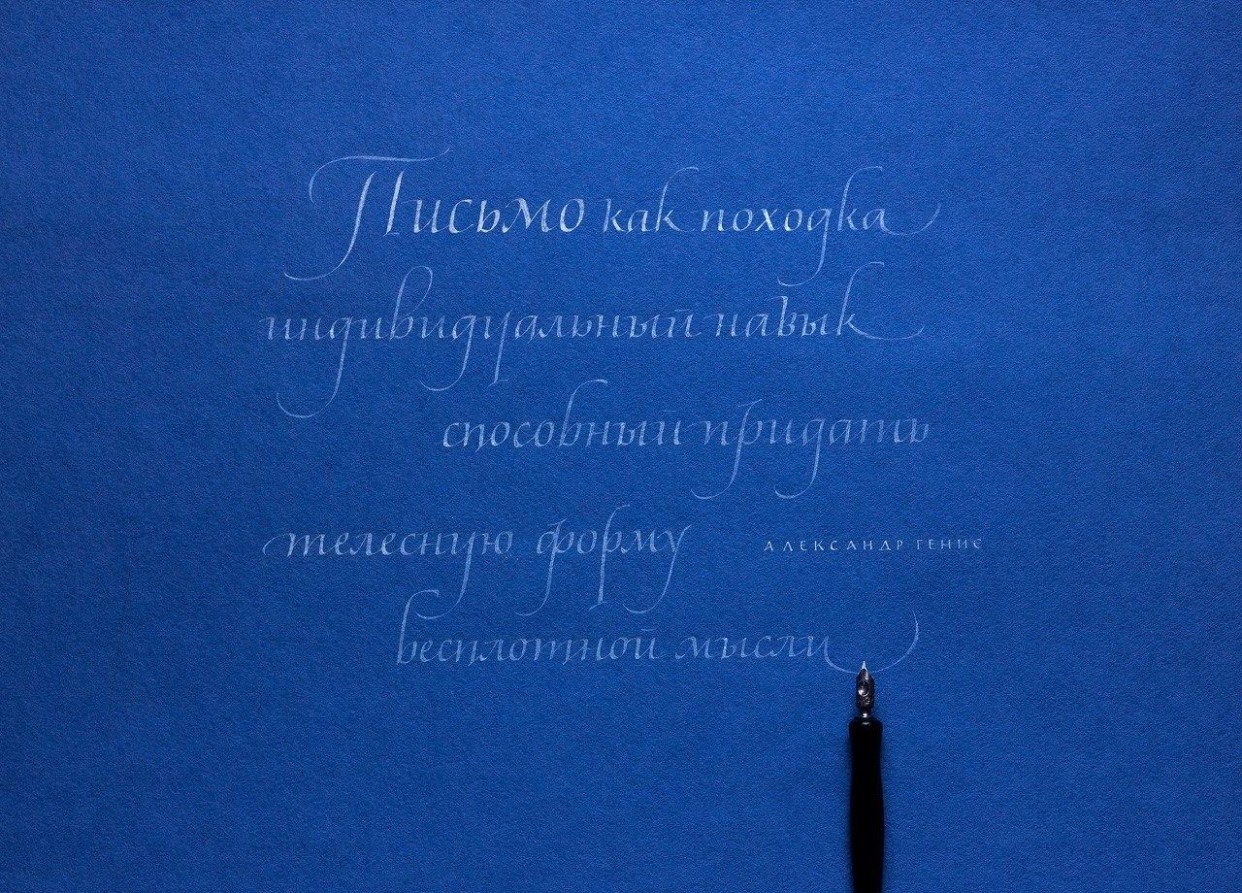 Письмо как походка
индивидуальный навык
способный придать
телесную форму
АЛЕКСАНДР ГЕНИС
бесплотной мысли